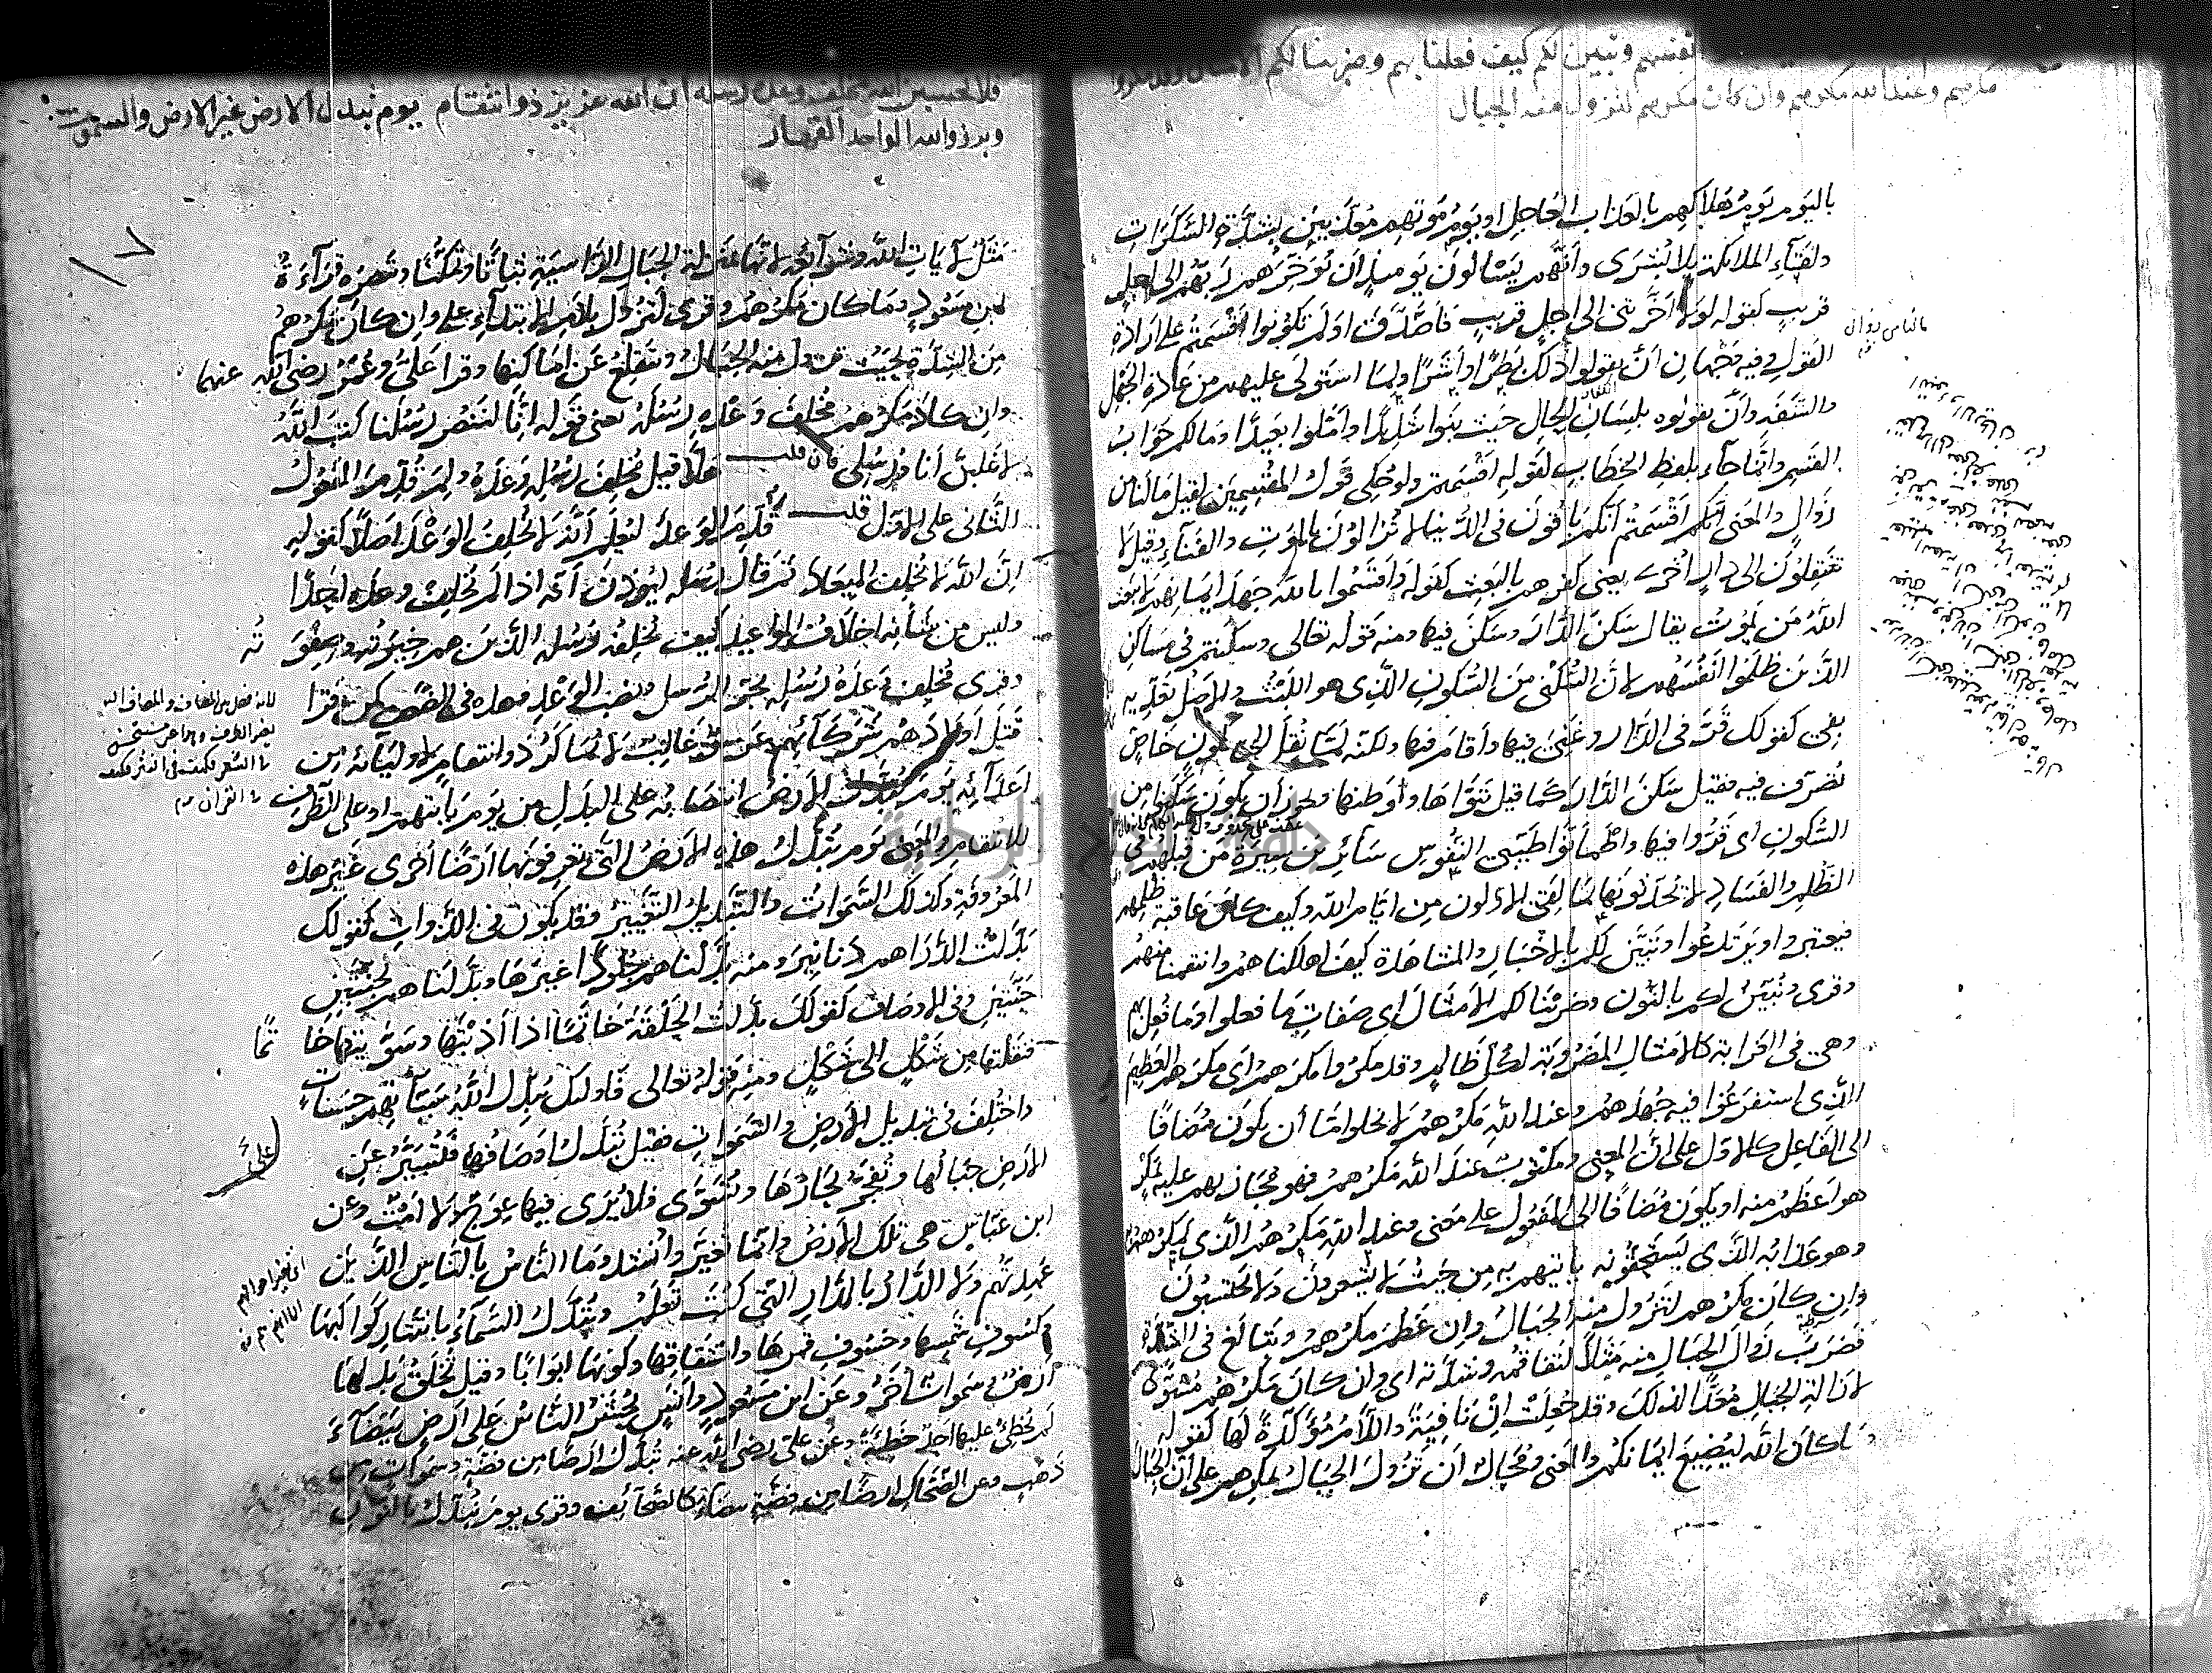 انفسهم وتبين لكم كيف فعلنا بهم وضربنا لكم الامثال وقد مكروا
مكرهم وعند الله مكرهم وان كان مكرهم لتزول منه الجبال
باليوم يوم هلاكهم بالعذاب العاجل او يوم موتهم معذبين بشدة السكرات
ولقاء الملائكة بلا بشرى وانهم يسألون يومئذ ان يؤخرهم ربهم الى اجل
قريب كقوله لولا اخرتني الى اجل قريب فاصدق اولم تكونوا اقسمتم على ارادة
القول وفيه وجهان ان يقولوا ذلك بطرا واشرا ولما استولى عليهم من عادة الجهل
والسفه وان يقولوه بلسان الحال حيث بنوا شديدا واملوا بعيدا ومالكم جواب
القسم وانما جاء بلفظ الخطاب لقوله اقسمتم ولو حكى قول المقسمين لقيل مالنا من
زوال والمعنى انكم اقسمتم انكم باقون في الدنيا لا تزالون بالموت والفناء وقيل لا
تنتقلون الى دار اخرى يعني كفرهم بالبعث كقوله واقسموا بالله جهد ايمانهم لا يبعث
الله من يموت يقال سكن الدار وسكن فيها ومنه قوله تعالى وسكنتم في مساكن
الذين ظلموا انفسهم لان السكنى من السكون الذي هو اللبث والاصل تعديه
بفي كقولك قر في الدار وغني فيها واقام فيها ولكنه لما نقل الى سكون خاص
تصرف فيه فقيل سكن الدار كما قيل تبواها واوطنها ويجوز ان يكون سكنوا من
السكون اي قروا فيها واطمأنوا طيبي النفوس سائرين بسيرة من قبلهم في
الظلم والفساد لا يحدثونها بما لقي الاولون من ايام الله وكيف كان عاقبة ظلمهم
فيعتبروا ويرتدعوا وتبين لكم بالاخبار والمشاهدة كيف اهلكناهم وانتقمنا منهم
وقرئ ونبين لكم بالنون وضربنا لكم الامثال اي صفات ما فعلوا وما فعل بهم
وهي في الغرابة كالامثال المضروبة لكل ظالم وقد مكروا مكرهم اي مكرهم العظيم
الذي استفرغوا فيه جهدهم وعند الله مكرهم لا يخلو اما ان يكون مضافا
الى الفاعل كالاول على ان المعنى ومكتوب عند الله مكرهم فهو مجازيهم عليه بمكر
هو اعظم منه او يكون مضافا الى المفعول على معنى وعند الله مكرهم الذي يمكرهم به
وهو عذابه الذي يستحقونه يأتيهم به من حيث لا يشعرون ولا يحتسبون
وان كان مكرهم لتزول منه الجبال وان عظم مكرهم وتبالغ في الشدة
فضرب زوال الجبال منه مثلا لتفاقمه وشدته اي وان كان مكرهم مسوى
لازالة الجبال معدا لذلك وقد جعلت ان نافية واللام مؤكدة لها كقوله
ما كان الله ليضيع ايمانكم والمعنى ومحال ان تزول الجبال بمكرهم على ان الجبال
فلا تحسبن الله مخلف وعده رسله ان الله عزيز ذو انتقام يوم تبدل الارض غير الارض والسموات
وبرزوا لله الواحد القهار
مثل لآيات الله وشرائعه لانها بمنزلة الجبال الراسية ثباتا وتمكنا وتنصره قراءة
ابن مسعود وما كان مكرهم وقرئ لتزول بلام الابتداء على وان كان مكرهم
من الشدة بحيث تزول منه الجبال وتنقلع عن اماكنها وقرا علي وعمر رضي الله عنهما
وان كاد مكرهم مخلف وعده رسله يعني قوله انا لننصر رسلنا كتب الله
لاغلبن انا ورسلي فان قلت هلا قيل مخلف رسله وعده ولم قدم المفعول
الثاني على الاول قلت قدم الوعد ليعلم انه لا يخلف الوعد اصلا كقوله
ان الله لا يخلف الميعاد ثم قال رسله ليؤذن انه اذا لم يخلف وعده احدا
وليس من شأنه اخلاف المواعيد كيف يخلفه رسله الذين هم خيرته وصفوته
وقرئ مخلف وعده رسله بجر الرسل ونصب الوعد وهذه في الضعف كمن قرا
قتل اولادهم شركائهم عزيز غالب لا يماكر ذو انتقام لاوليائه من
اعدائه يوم تبدل الارض انتصابه على البدل من يوم يأتيهم او على الظرف
للانتقام والمعنى يوم تبدل هذه الارض التي تعرفونها ارضا اخرى غير هذه
المعروفة وكذلك السموات والتبديل التغيير وقد يكون في الذوات كقولك
بدلت الدراهم دنانير ومنه بدلناهم جلودا غيرها وبدلناهم بجنتيهم
جنتين وفي الاوصاف كقولك بدلت الحلقة خاتما اذا اذبتها وسويتها خاتما
فنقلتها من شكل الى شكل ومنه قوله تعالى فاولئك يبدل الله سيئاتهم حسنات
واختلف في تبديل الارض والسموات فقيل تبدل اوصافها فتسير عن
الارض جبالها وتفجر بحارها وتسوى فلا يرى فيها عوج ولا امت وعن
ابن عباس هي تلك الارض وانما تغير وانشد وما الناس بالناس الذين
عهدتهم ولا الدار بالدار التي كنت تعلم وتبدل السماء بانتثار كواكبها
وكسوف شمسها وخسوف قمرها وانشقاقها وكونها ابوابا وقيل تخلق بدلها
ارض وسموات اخر وعن ابن مسعود وانس يحشر الناس على ارض بيضاء
لم يخطئ عليها احد خطيئة وعن علي رضي الله عنه تبدل ارضا من فضة وسموات من
ذهب وعن الضحاك ارضا من فضة بيضاء كالصحائف وقرئ يوم نبدل بالنون